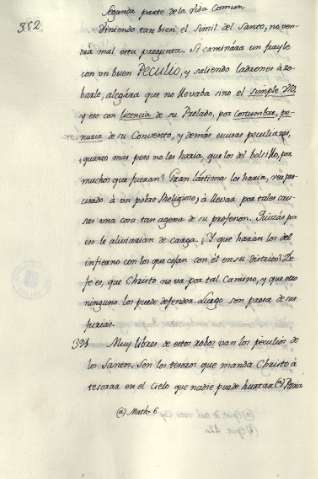 Segunda parte de la Vida Comun
352
Viniendo tan bien el simil del Santo, no ven
dria mal esta pregunta. Si caminára un frayle
con un buen Peculio, y saliendo ladrones á ro
barle, alegára que no llevaba sino el simple Vso,
y eso con licencia de su Prelado, por costumbre, pe
nuria de su Convento, y demás escusas peculiares,
quanto mas
que los del bolsillo, por
muchos que fueran? Gran lástima les haria, ver pre
cisado á un pobre Religioso á llevar por tales cau
sas una cosa tan agena de su profesion. Quizás por
eso le aliviarian de carga. ¿Y que harán los del
infierno con los que cojan con él en su distrito? De
fe es, que Christo no va por tal Camino, y que otro
ninguno los puede defender. Luego son presa de sus
furias.
Muy libres de estos robos van los peculios de
lo Sanos. Son los tesoros que manda Christo á
tesorar en el cielo que nadie puede hurtar (a)
(a) Math. 6